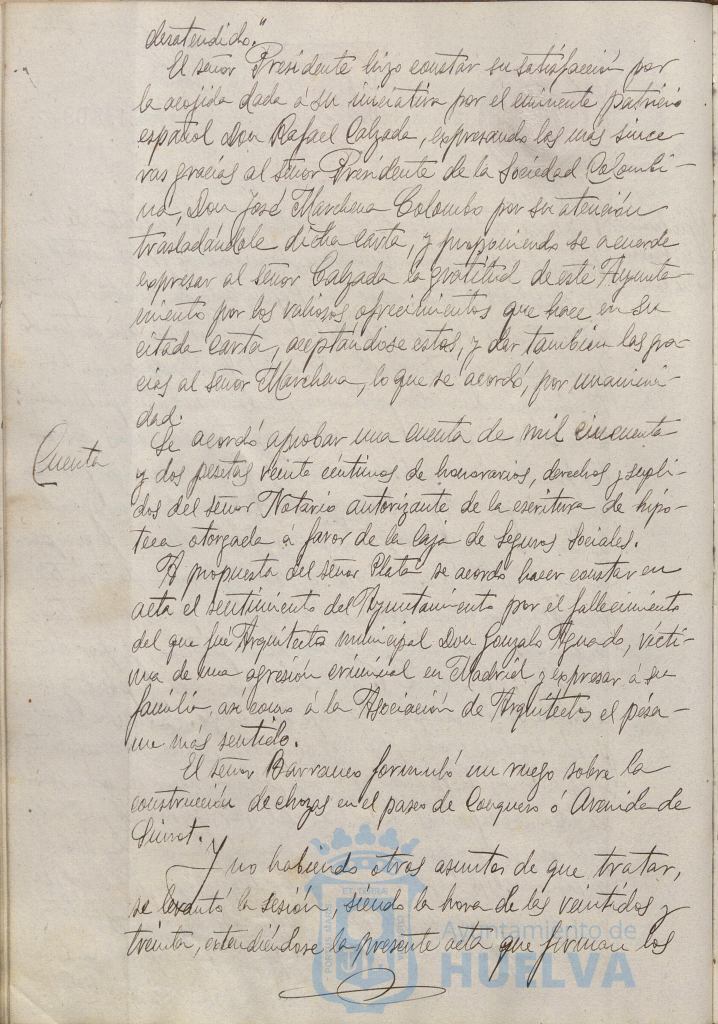 desatendido."
El señor Presidente hizo constar su satisfacción por
la acojida dada á su iniciativa por el eminente patricio
español Don Rafael Calzada, expresando las mas since
ras gracias al señor Presidente de la Sociedad Colombi-
na, Don José Marchena Colombo por su atención
trasladándole dicha carta, y proponiendo se acuerde
expresar al señor Calzada la gratitud de este Ayunta-
miento por los valiosos ofrecimientos que hace en su
citada carta, aceptándose estos, y dar tambien las gra-
cias al señor Marchena, lo que se acordó, por unanimi-
dad.
Cuenta
Se acordó aprobar una cuenta de mil cincuenta
y dos pesetas veinte céntimos de honorarios, derechos y supli-
dos del señor Notario autorizante de la escritura de hipo-
teca otorgada á favor de la Caja de Seguros Sociales.
A propuesta del señor Plata se acordó hacer constar en
acta el sentimiento del Ayuntamiento por el fallecimiento
del que fué Arquitecto municipal Don Gonzalo Aguado, vícti-
ma de una agresión criminal en Madrid y expresar á su
familia, así como á la Asociación de Arquitectos el pésa-
me más sentido.
El señor Barranco formuló un ruego sobre la
construcción de chozas en el paseo de Conquero ó Avenida de
Siurot.
Y no habiendo otros asuntos de que tratar,
se levantó la sesión, siendo la hora de las veintidos y
treinta, extendiéndose la presente acta que firman los
Ayuntamiento de
HUELVA